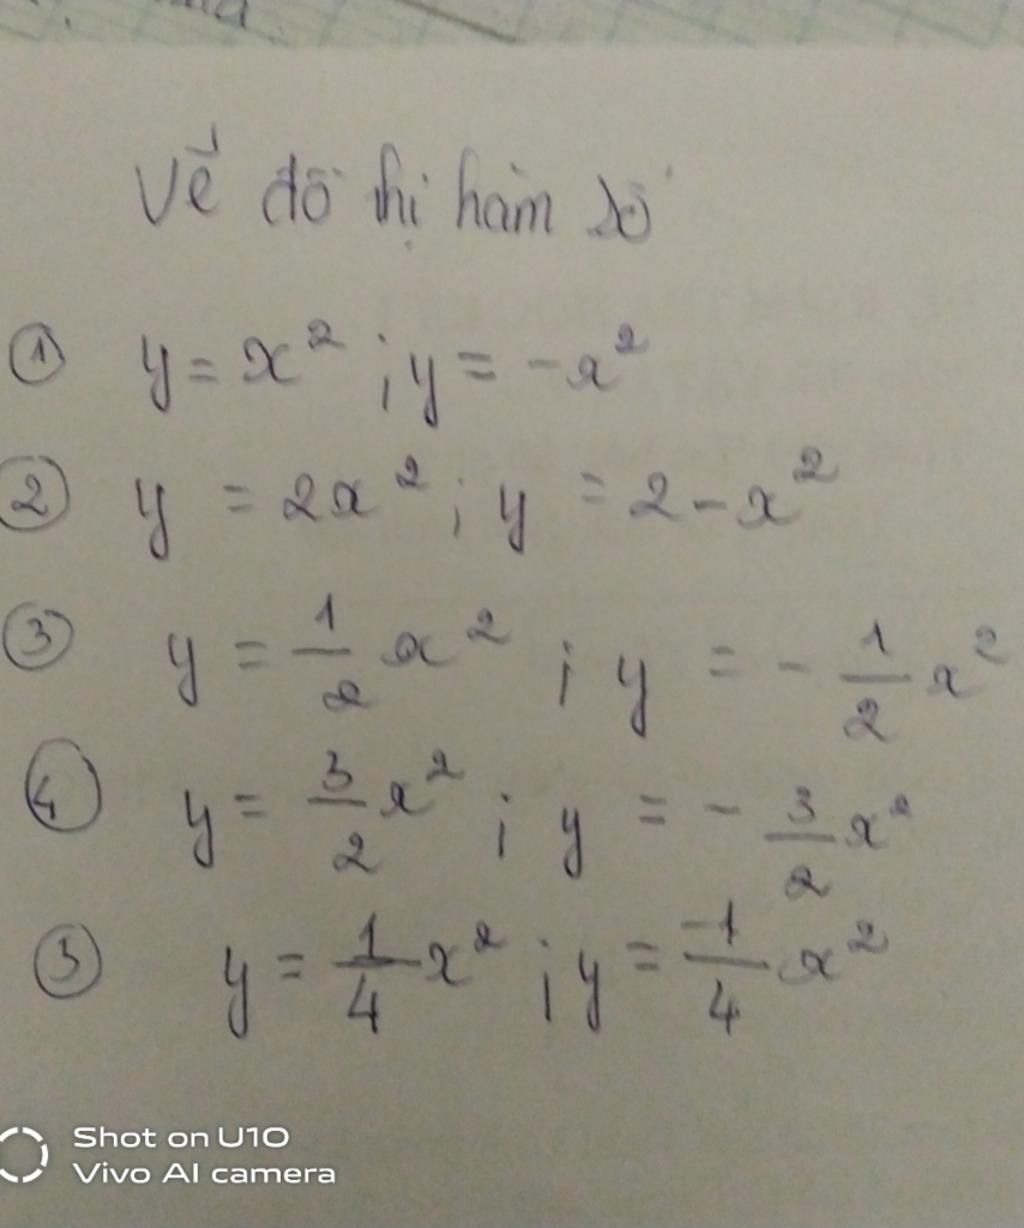 Vẽ đồ thị hàm số
① y = x² ; y = -x²
② y = 2x² ; y = 2 - x²
③ y = 1/2 x² ; y = - 1/2 x²
④ y = 3/2 x² ; y = - 3/2 x²
⑤ y = 1/4 x² ; y = -1/4 x²
Shot on U10
Vivo AI camera